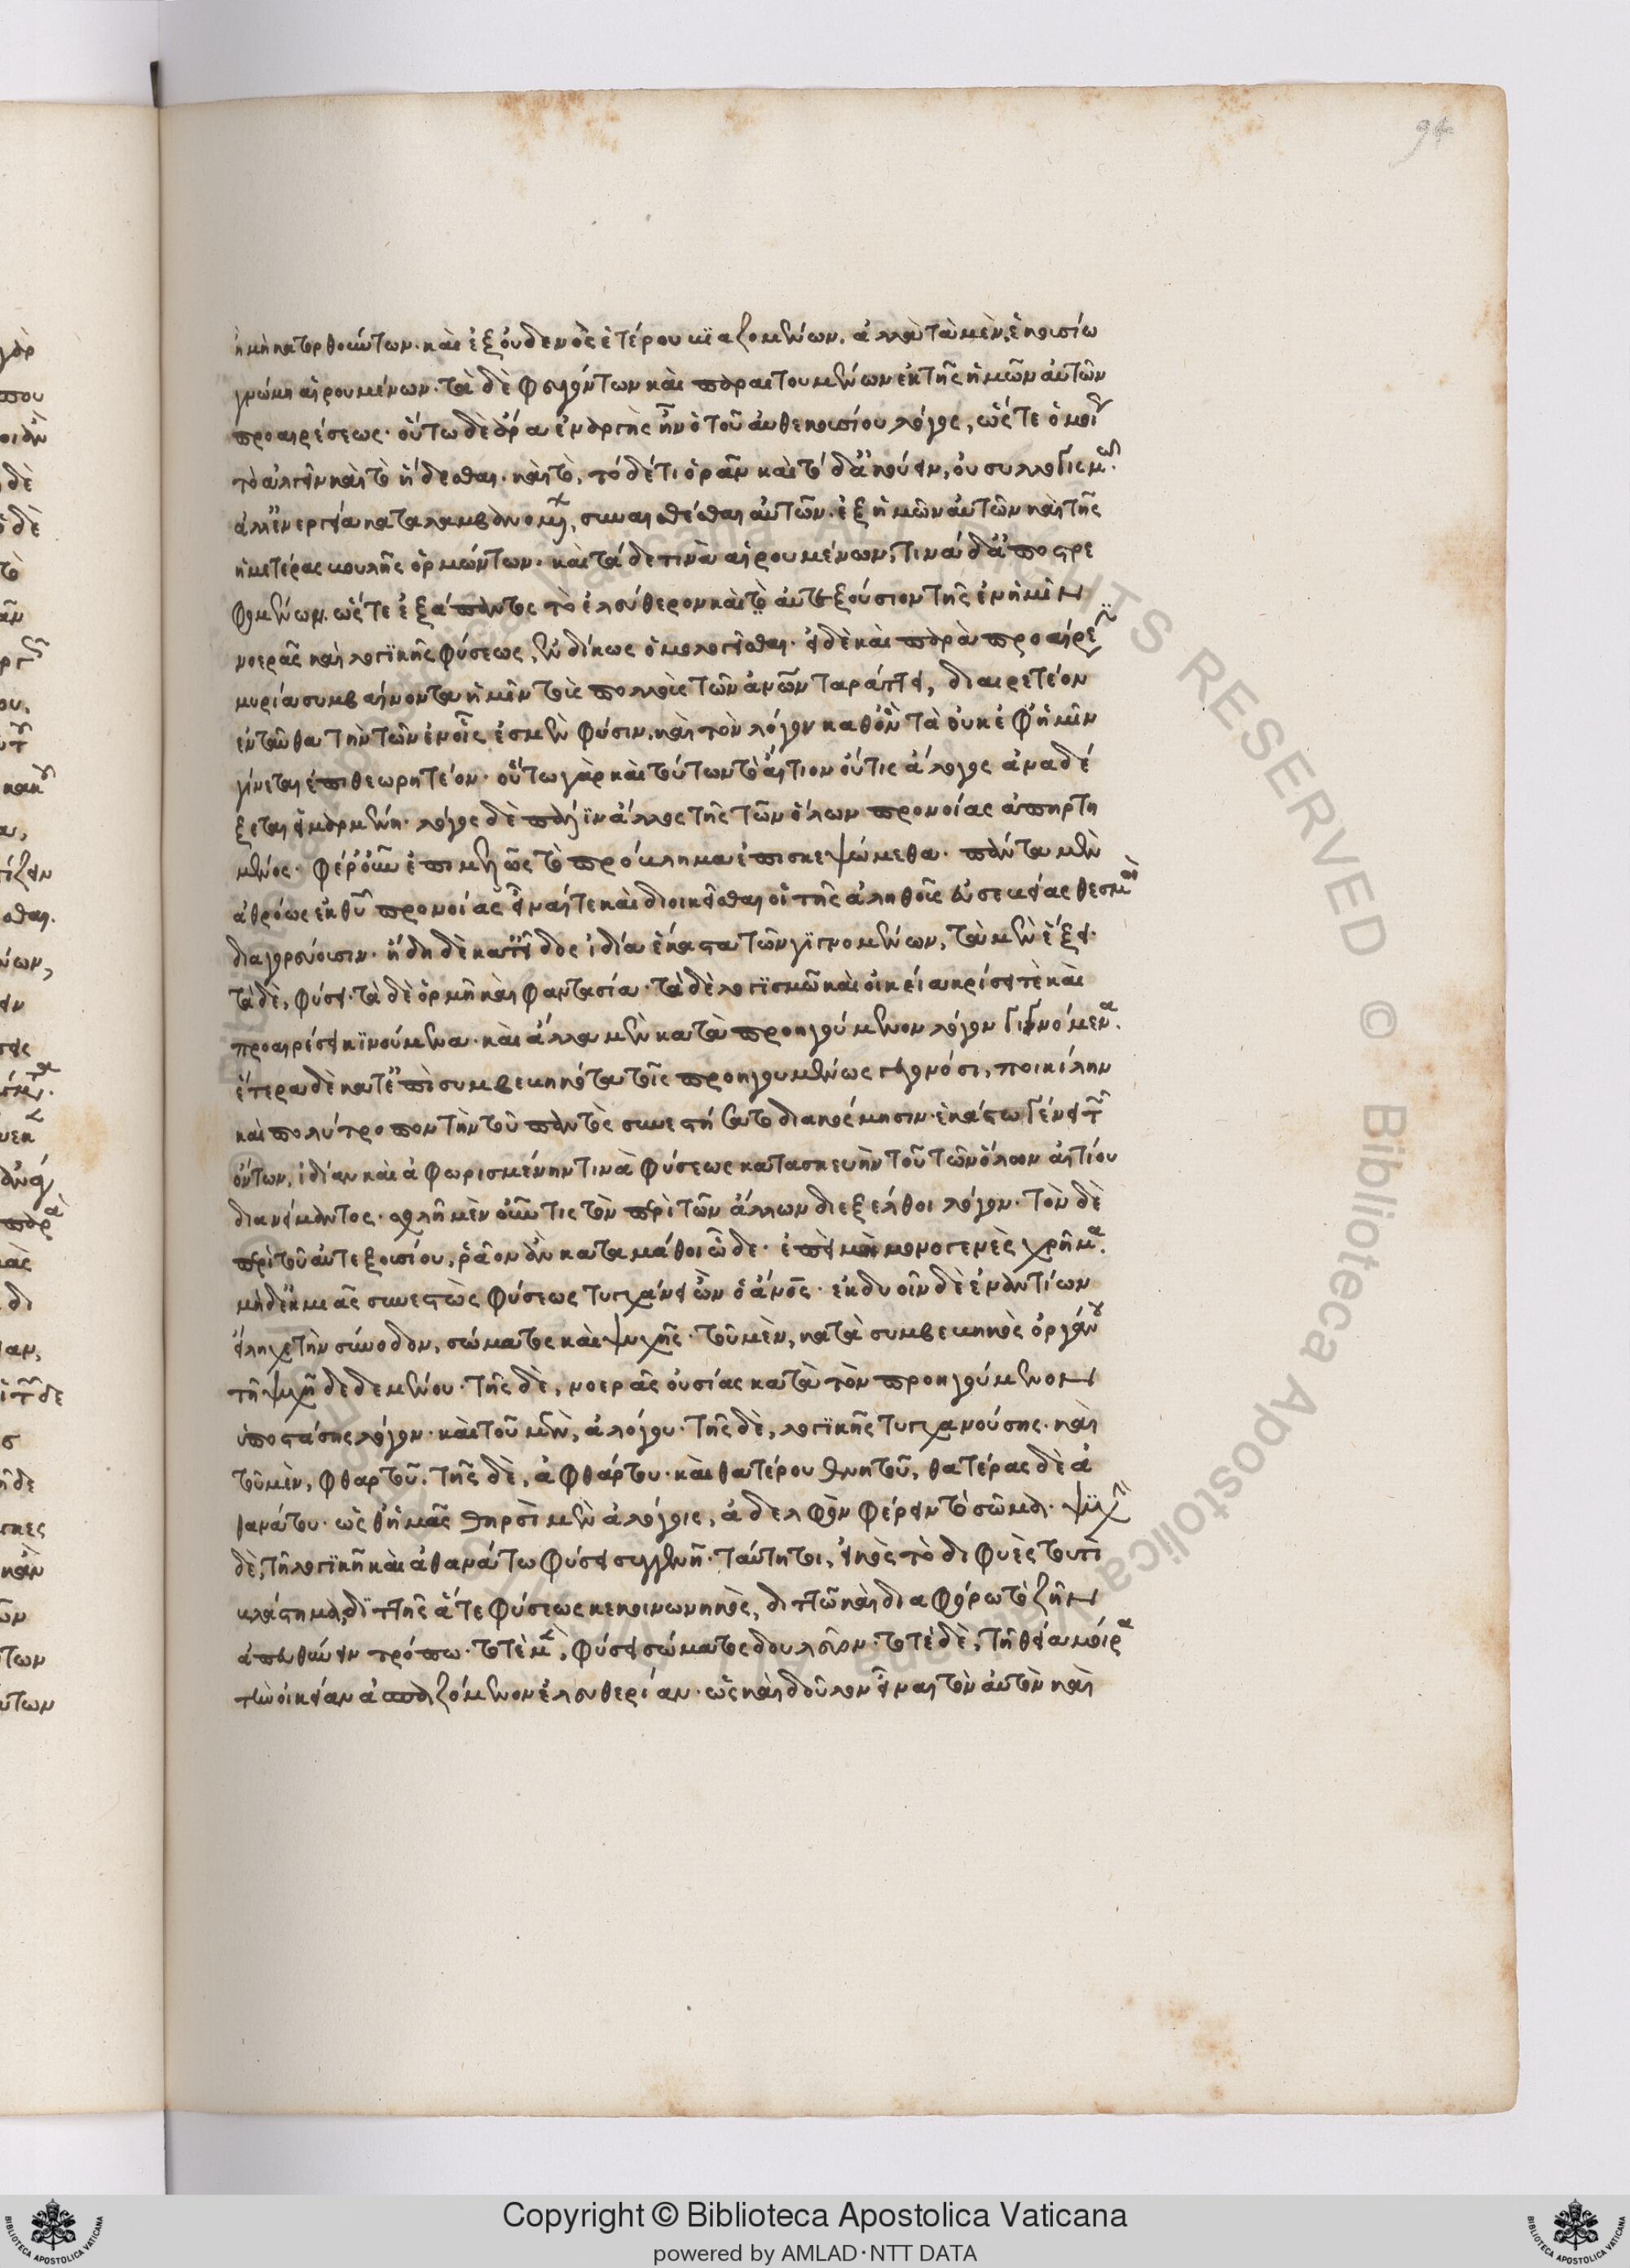 94
ἢ μὴ κατορθούντων. καὶ ἐξ οὐδενὸς ἑτέρου βιαζομένων. ἀλλὰ τὰ μὲν, ἑκουσίω
γνώμη αἱρουμένων. τὰ δὲ φευγόντων καὶ παραιτουμένων ἐκ τῆς ἡμῶν αὐτῶν
προαιρέσεως. οὕτω δὲ ἄρα ἐναργὴς ἦν ὁ τοῦ αὐθεκουσίου λόγος, ὥστε ὁμοί
τὸ ἀλγεῖν καὶ τὸ ἥδεσθαι. καὶ τὸ, τόδέ τι ὁρᾶν καὶ τόδ' ἀκούειν, οὐ συλλογισμ
ἀλλ' ἐνεργεία καταλαμβανομ, συναισθέσθαι αὐτῶν. ἐξ ἡμῶν αὐτῶν καὶ τῆς
ἡμετέρας βουλῆς ὁρμώντων. καὶ τάδε τινὰ αἱρουμένων, τινά δ' ἀποστρε
φομένων. ὥστε ἐξάπαντος τὸ ἐλεύθερον καὶ τὸ αὐτεξούσιον τῆς ἐν ἡμῖν
νοερᾶς καὶ λογικῆς φύσεως, ἐνδίκως ὁμολογεῖσθαι. εἰ δὲ καὶ παρὰ προαίρε
μυρία συμβαίνοντα ἡμῖν τοὺς πολλοὺς τῶν ἀνων ταράττει, διαιρετέον
ἐνταῦθα τὴν τῶν ἐν οἷς ἐσμὲν φύσιν. καὶ τὸν λόγον καθ' ὃν τὰ οὐκ ἐφ' ἡμῖν
γίνεται ἐπιθεωρητέον. οὕτω γὰρ καὶ τούτων τὸ αἴτιον οὔτις ἄλογος ἀναδέ
ξεται εἱμαρμένη. λόγος δὲ πάλιν ἄλλος τῆς τῶν ὅλων προνοίας ἀπηρτη
μένος. φέρ' οὖν ἐπιμελῶς τὸ πρόβλημα ἐπισκεψώμεθα. πάντα μὲν
ἀθρόως ἐκ θυ προνοίας εἶναί τε καὶ διοικεῖσθαι οἱ τῆς ἀληθοῦς εὐσεβείας θεσμοὶ
διαγορεύουσιν. ἤδη δὲ κατ' εἶδος ἰδία ἕκαστα τῶν γιγνομένων, τὰ μὲν ἕξει.
τὰ δὲ, φύσει. τὰ δὲ ὁρμῆ καὶ φαντασία. τὰ δὲ λογισμῶ καὶ οἰκεία κρίσει τὲ καὶ
προαιρέσει κινούμενα. καὶ ἄλλα μὲν κατὰ προηγούμενον λόγον γιγνόμενα.
ἕτερα δὲ κατ' ἐπισυμβεβηκότα τοῖς προηγουμένως γεγονόσι, ποικίλην
καὶ πολύτροπον τὴν τοῦ παντὸς συνεστήσατο διακόσμησιν. ἑκάστω γένει τῶν
ὄντων, ἰδίαν καὶ ἀφωρισμένην τινὰ φύσεως κατασκευὴν τοῦ τῶν ὅλων αἰτίου
διανείμαντος. σχολῆ μὲν οὖν τις τὸν περὶ τῶν ἄλλων διεξέλθοι λόγον. τὸν δὲ
περὶ τοῦ αὐτεξουσίου, ῥᾶον ἂν καταμάθοι ὧδε. ἐπεὶ μὴ μονογενὲς χρῆμα.
μὴδ' ἐκ μιᾶς συνεστὼς φύσεως τυγχάνει ὢν ὁ ἄνος. ἐκ δυοῖν δὲ ἐναντίων
εἴληχε τὴν σύνοδον, σώματος καὶ ψυχῆς. τοῦ μὲν, κατὰ συμβεβηκὸς ὀργάνου
τῆ ψυχῆ δεδεμένου. τῆς δὲ, νοερᾶς οὐσίας κατὰ τὸν προηγούμενον
ὑποστάσης λόγον. καὶ τοῦ μὲν, ἀλόγου. τῆς δὲ, λογικῆς τυγχανούσης. καὶ
τοῦ μὲν, φθαρτοῦ. τῆς δὲ, ἀφθάρτου. καὶ θατέρου θνητοῦ, θατέρας δὲ ἀ
θανάτου. ὡς θ' ἡμᾶς θηρσὶ μὲν ἀλόγοις, ἀδελφὸν φέρειν τὸ σῶμα. ψυχὴν
δὲ, τῆ λογικῆ καὶ ἀθανάτω φύσει συγγενῆ. ταύτη τοι, εἰκὸς τὸ διφυὲς τουτὶ
βλάστημα, διττῆς ἅτε φύσεως κεκοινωνηκὸς, διττῶ καὶ διαφόρω τὸ ζῆν
ἀπευθύνειν τρόπω. τοτὲ μὲν, φύσει σώματος δουλεῦον. τοτὲ δὲ, τῆ θεία μοίρα
τὴν οἰκείαν ἀσπαζόμενον ἐλευθερίαν. ὡς καὶ δοῦλον εἶναι τὸν αὐτὸν καὶ
Copyright © Biblioteca Apostolica Vaticana
powered by AMLAD·NTT DATA